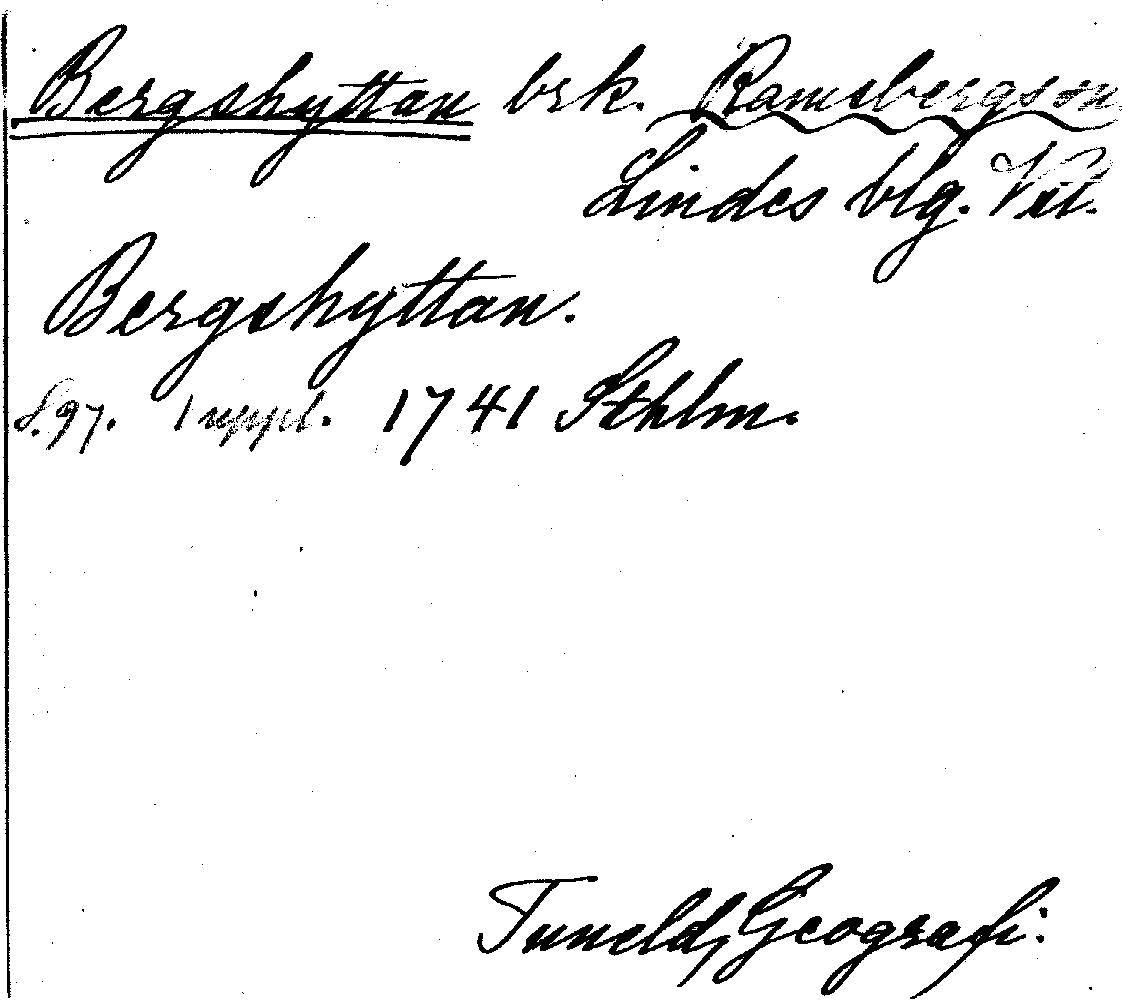 Bergshyttan brk. Ramsbergs sn
Lindes blg. Vstl.
Bergshyttan.
S. 97. 1 uppl. 1741 Sthlm.
Tuneld, Geografi.